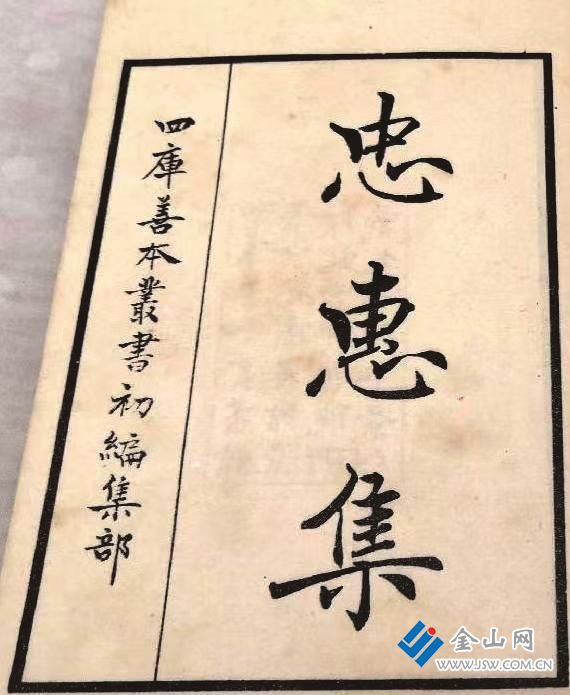 忠惠集
四庫善本叢書初編集部
金山网
WWW.JSW.COM.CN